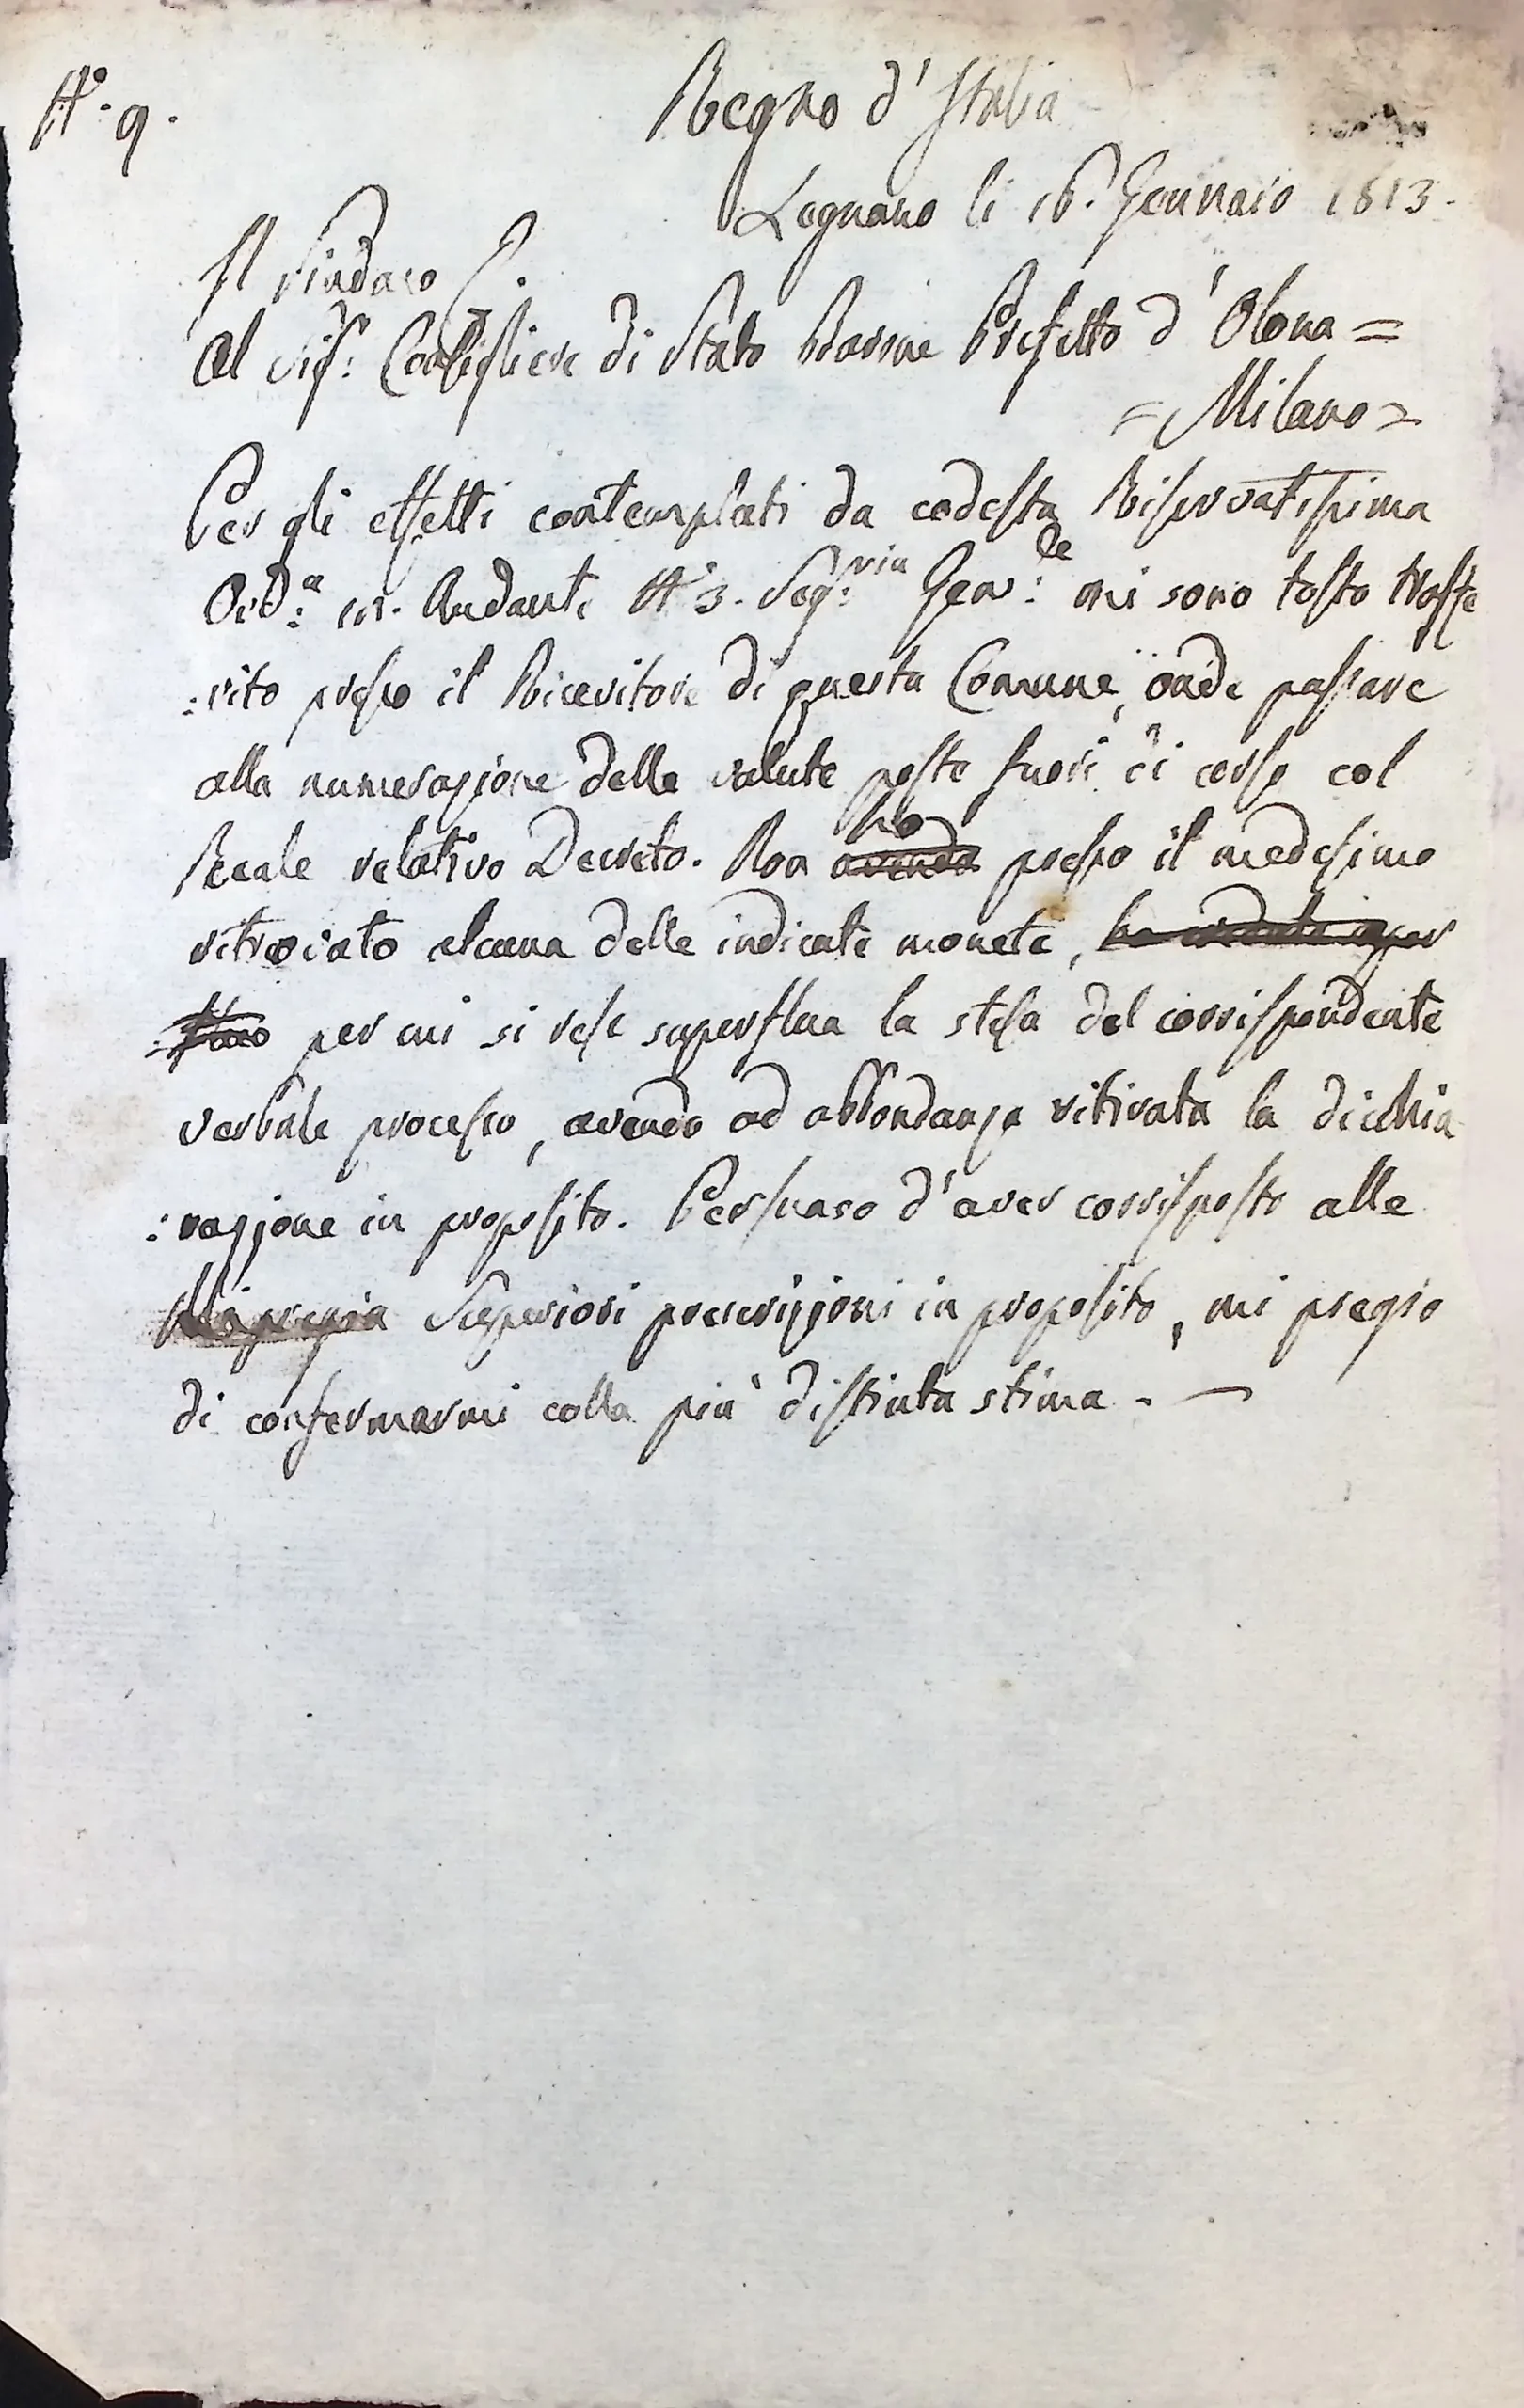 N.° 9.
Regno d'Italia
Legnano li 16. Gennaio 1813.
Il Sindaco
Al Sig.r Consigliere di Stato Barone Prefetto d'Olona =
= Milano =
Per gli effetti contemplati da codesta Riservatissima
Ord.a cor. Andante N.° 3. Seg.ria Gen.le mi sono tosto trasfe
:rito presso il Ricevitore di questa Comune, onde passare
alla numerazione delle valute poste fuori di corso col
Reale relativo Decreto. Non avendo ho presso il medesimo
ritrovato alcuna delle indicate monete,
per cui si rese superflua la stesa del corrispondente
verbale processo, avendo ad abbondanza ritirata la dichia
:razione in proposito. Persuaso d'aver corrisposto alle
Superiori prescrizioni in proposito, mi pregio
di confermarmi colla più distinta stima. —